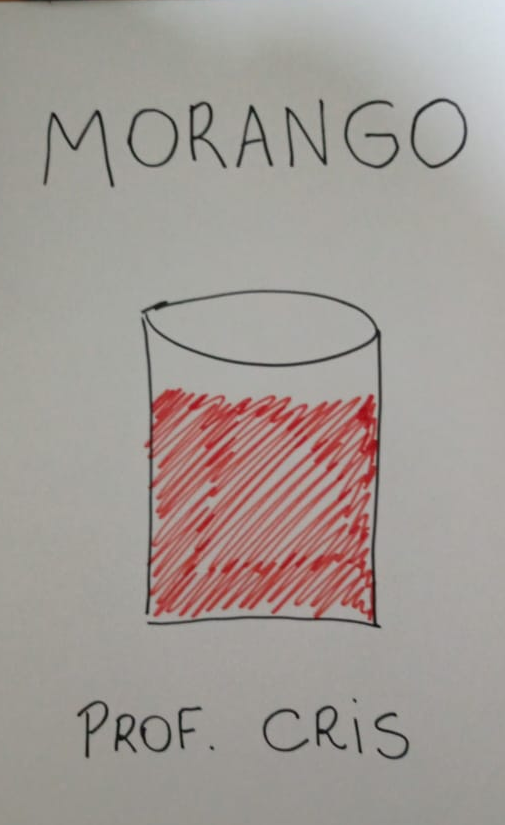 MORANGO
PROF. CRIS